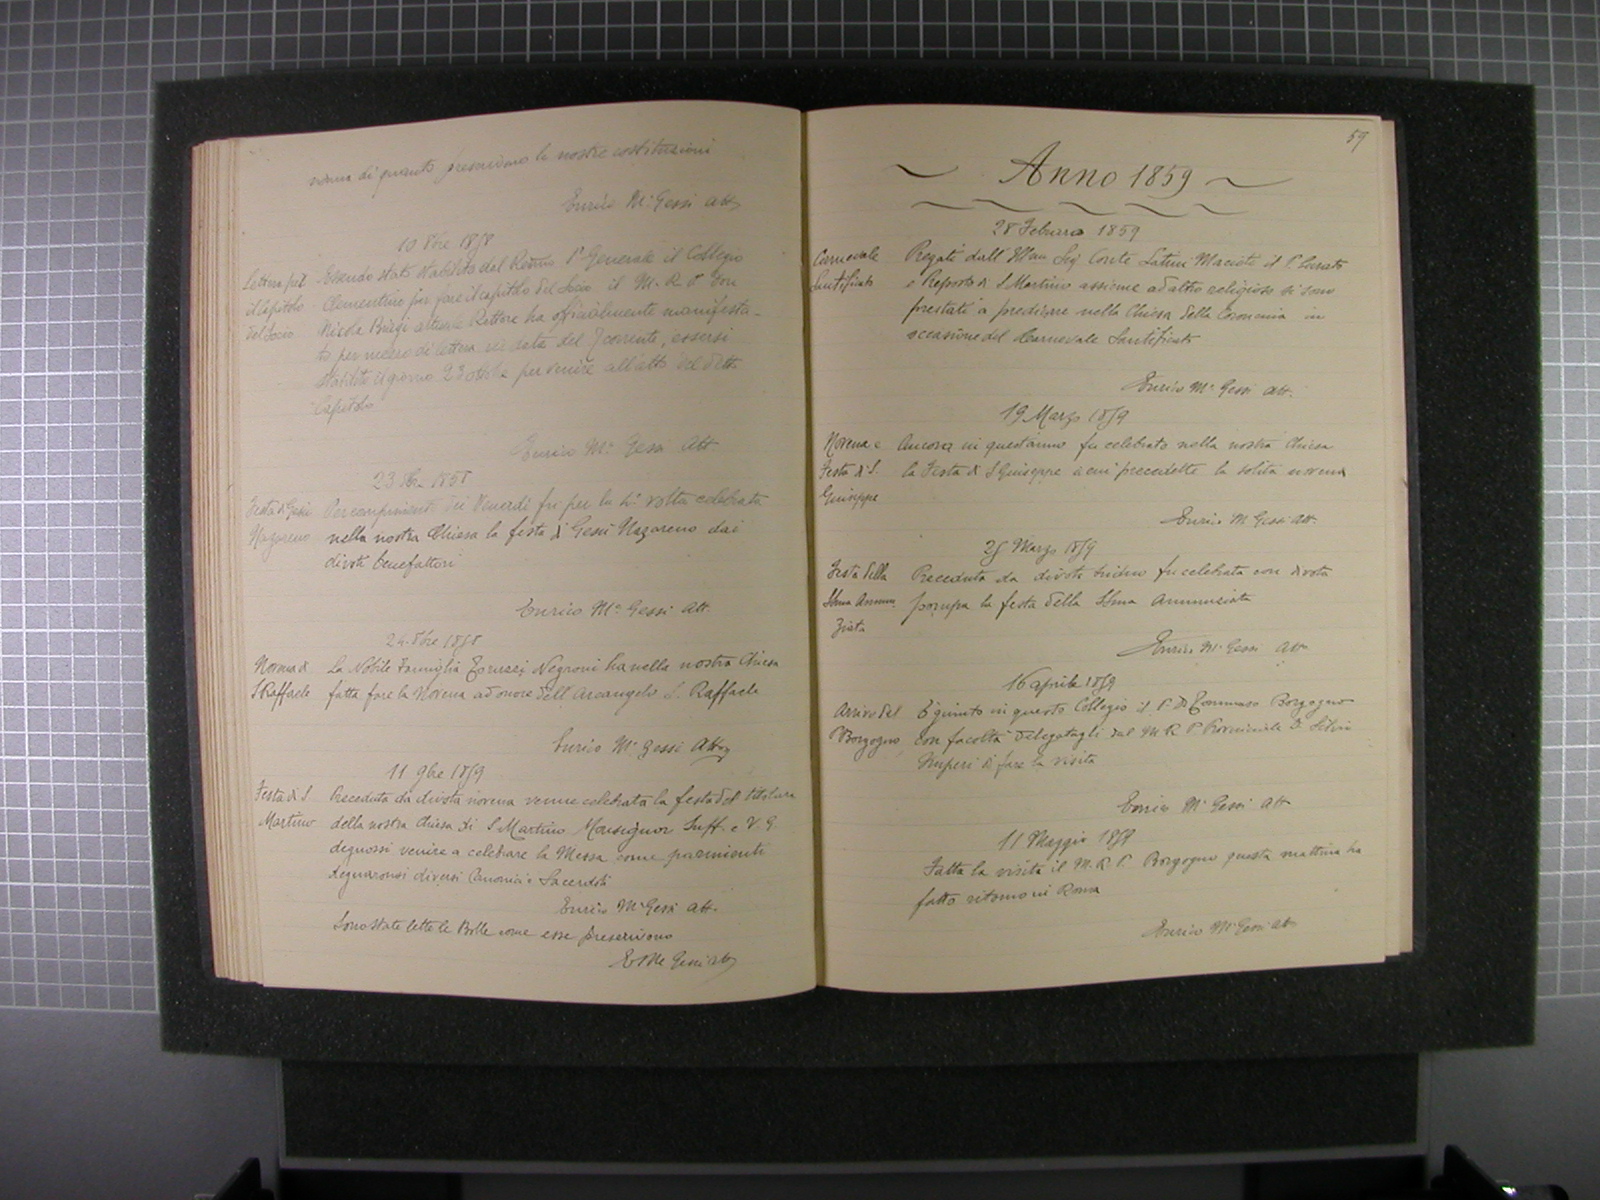 norma di quanto prescrivono le nostre costituzioni
Enrico M.ª Gessi Att.
10 8bre 1858
Lettera pel
il Capitolo
del Socio
Essendo stato stabilito dal Rmo P. Generale il Collegio
Clementino per fare il capitolo del Socio il M. R. P. Don
Nicola Biagi attuale Rettore ha officialmente manifesta-
to per mezzo di lettera in data del 7 corrente, essersi
stabilito il giorno 23 ottobre per venire all'atto del detto
Capitolo
Enrico M.ª Gessi Att.
23 8bre 1858
Festa di Gesù
Nazareno
Per compimento dei Venerdì fu per la 4ª volta celebrata
nella nostra Chiesa la festa di Gesù Nazareno dai
divoti benefattori
Enrico M.ª Gessi Att.
24 8bre 1858
Novena di
S Raffaele
La Nobile Famiglia Negroni ha nella nostra Chiesa
fatta fare la Novena ad onore dell'Arcangelo S. Raffaele
Enrico M.ª Gessi Att.
11 9bre 1859
Festa di S
Martino
Preceduta da divota novena venne celebrata la festa del titolare
della nostra Chiesa di S Martino Monsignor Suff. e V. G.
degnossi venire a celebrare la Messa come parimenti
degnaronsi diversi Canonici e Sacerdoti
Enrico M.ª Gessi Att.
Sono state lette le Bolle come esse prescrivono
E Me Gessi att
59
Anno 1859
28 Febraro 1859
Carnevale
Santificato
Pregati dall'Illmo Sig Conte il P. Curato
e Preposto di S Martino assieme ad altro religioso si sono
prestati a predicare nella Chiesa della in
occasione del Carnevale Santificato
Enrico M.ª Gessi Att.
19 Marzo 1859
Novena e
Festa di S.
Giuseppe
Ancora in quest'anno fu celebrata nella nostra Chiesa
la Festa di S Giuseppe a cui precedette la solita novena
Enrico M. Gessi Att.
25 Marzo 1859
Festa della
SSma Annun
ziata
Preceduta da divoto triduo fu celebrata con divota
pompa la festa della SSma Annunziata
Enrico M.ª Gessi Att
16 aprile 1859
Arrivo del
P Borgogno
E' giunto in questo Collegio il P. D. Tommaso Borgogno
con facoltà delegatagli dal M. R. P Provinciale D. Silvio
Imperi di fare la visita
Enrico M.ª Gessi Att
11 Maggio 1859
Fatta la visita il M. R. P. Borgogno questa mattina ha
fatto ritorno in Roma
Enrico M.ª Gessi att